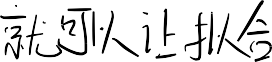 就可以让拟合